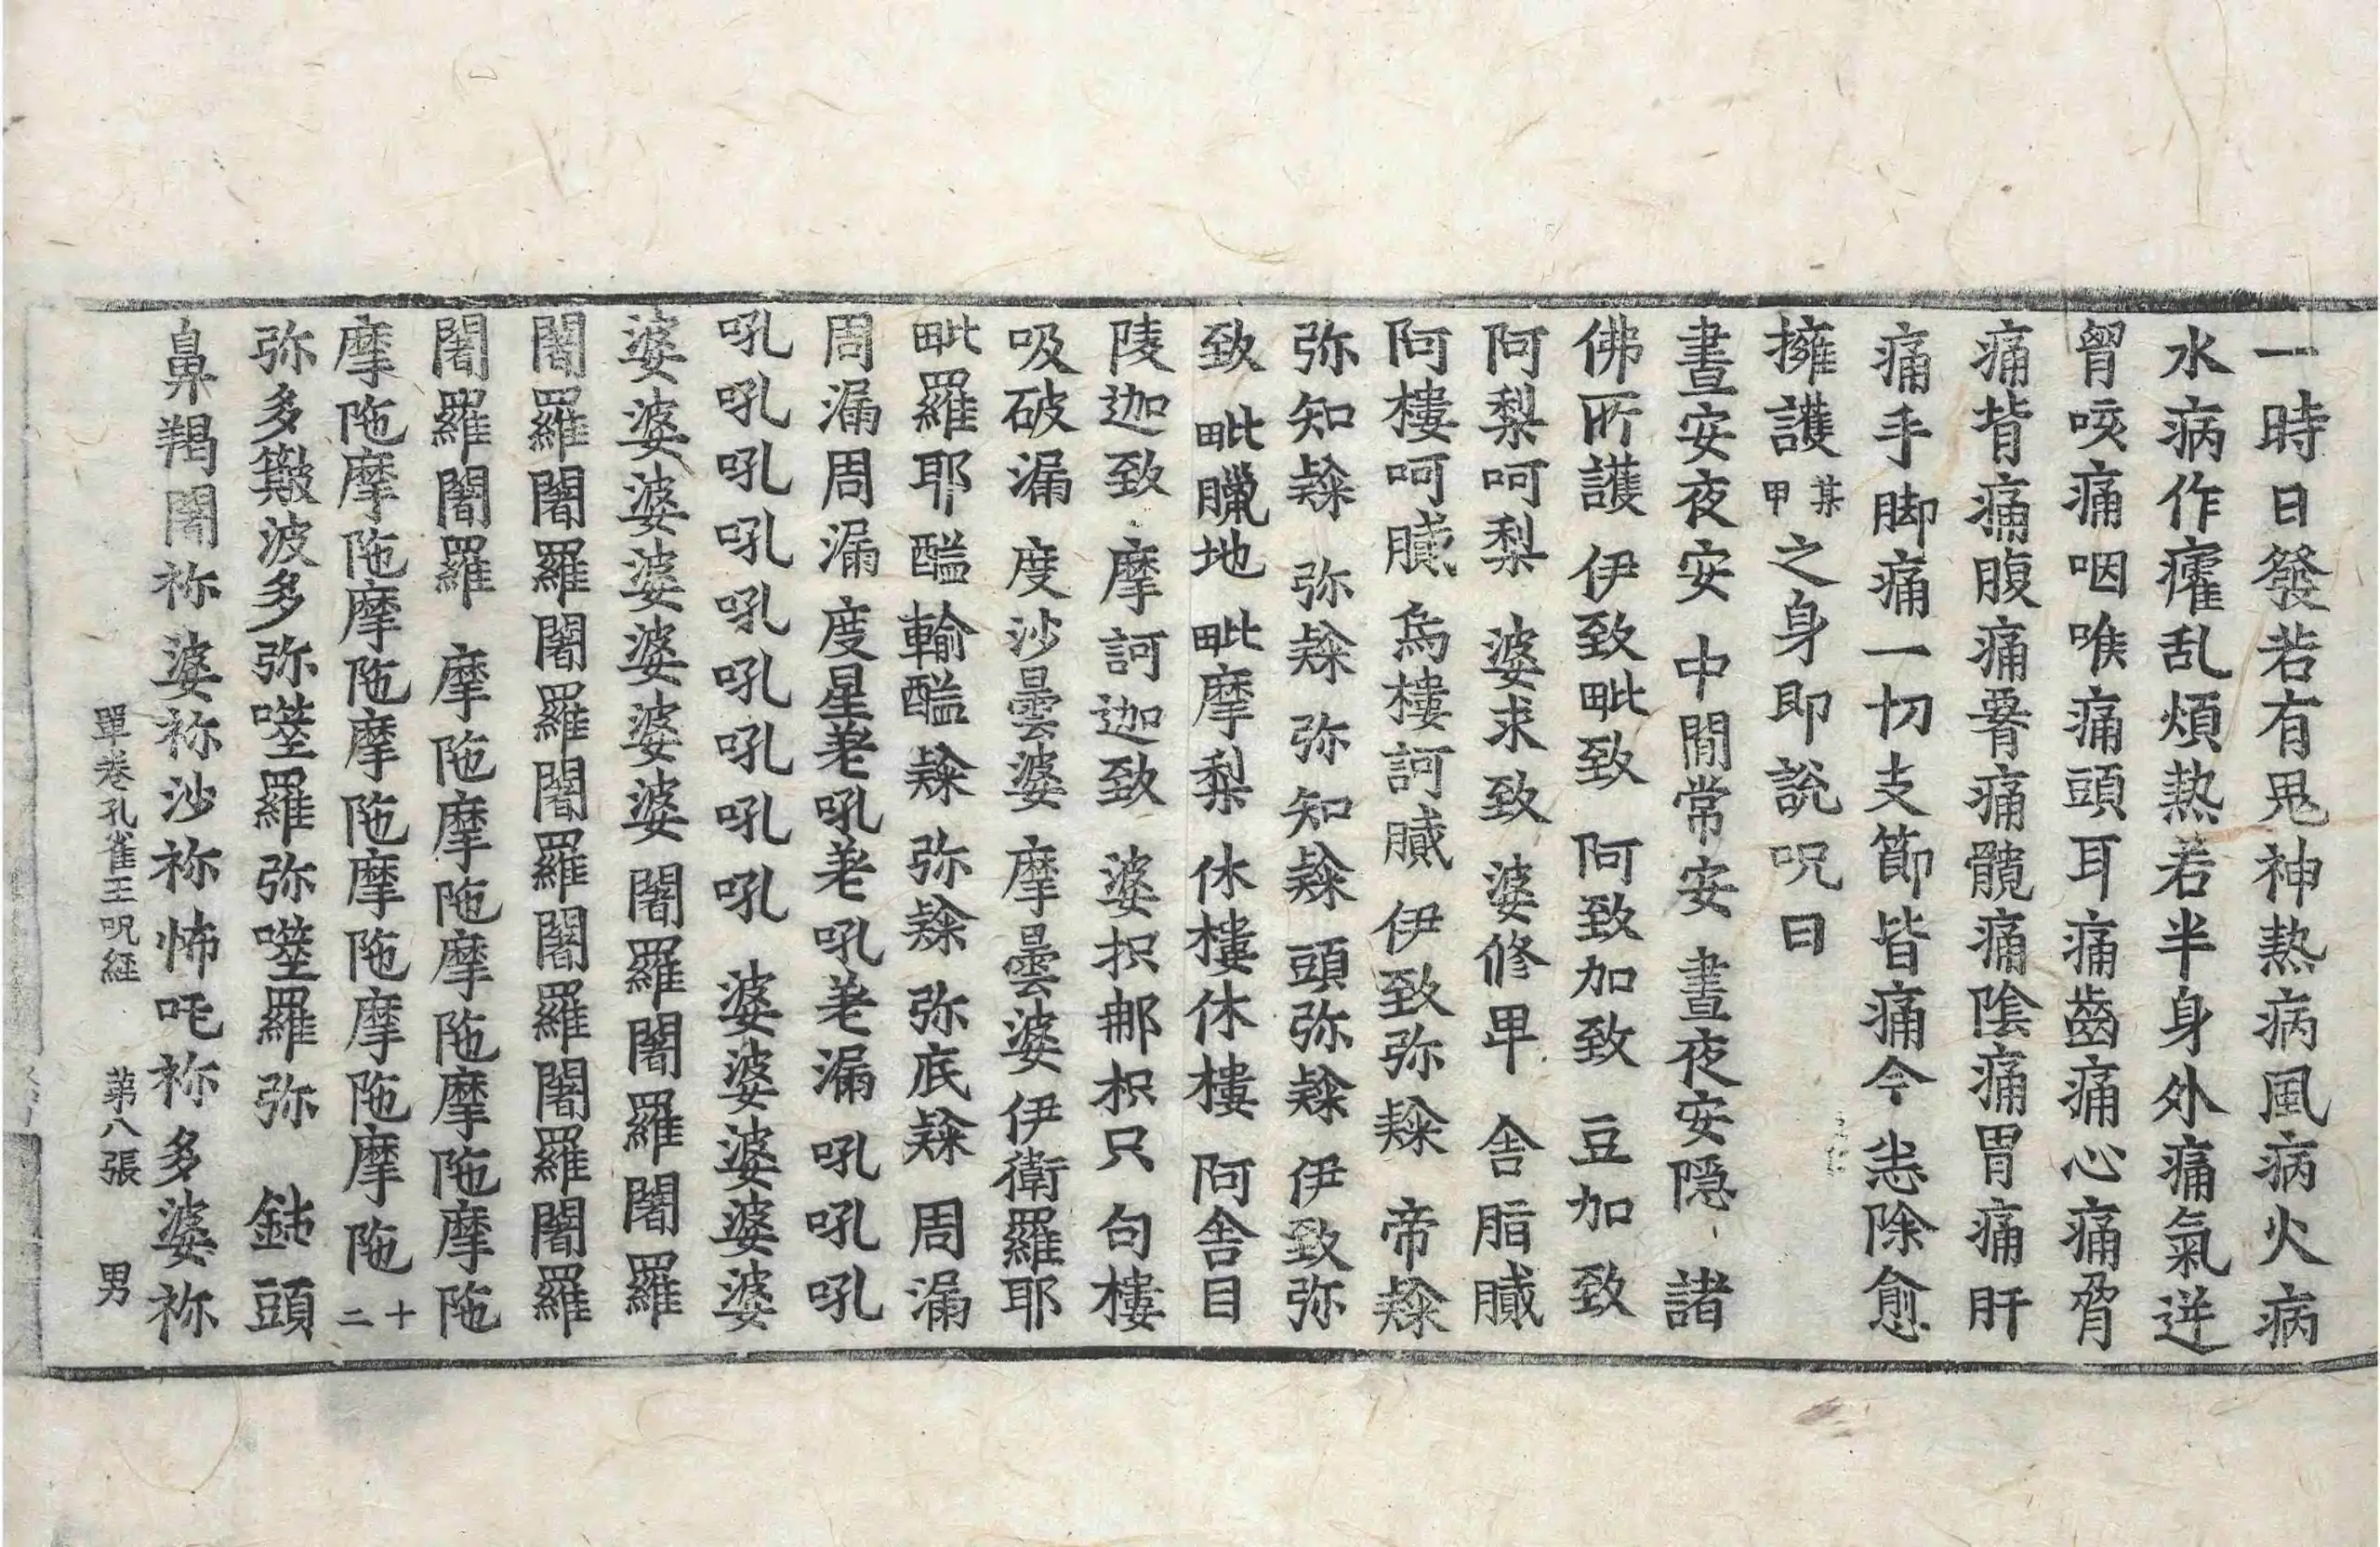 一時日發若有鬼神熱病風病火病
水病作癨乱煩熱若半身外痛氣迸
胷咳痛咽喉痛頭耳痛齒痛心痛脅
痛背痛腹痛䯊痛髖痛陰痛胃痛肝
痛手脚痛一切支節皆痛今恙除愈
擁護某甲之身即說呪曰
晝安夜安 中閒常安 晝夜安隠 諸
佛所護 伊致毗致 阿致加致 豆加致
阿梨呵梨 婆求致 婆修甲 舎脂膩
阿樓呵膩 烏樓訶膩 伊致弥䊏 帝䊏
弥知䊏 弥䊏 弥知䊏 頭弥䊏 伊致弥
致 毗臘地 毗摩梨 休樓休樓 阿舎目
陵迦致 摩訶迦致 婆抧郍枳只 句樓
吸破漏 度沙曇婆 摩曇婆 伊衛羅耶
毗羅耶 醓輸醓䊏 弥䊏 弥底䊏 周漏
周漏周漏 度星荖吼荖吼荖漏 吼吼
吼吼吼吼吼吼吼吼吼 婆婆婆婆婆
婆婆婆婆婆婆婆 闍羅闍羅闍羅
闍羅闍羅闍羅闍羅闍羅闍羅闍羅
闍羅闍羅 摩陁摩陁摩陁摩陁摩陁
摩陁摩陁摩陁摩陁摩陁摩陁摩陁十二
弥多波多弥羅弥羅弥 頭
鼻羯闍祢婆祢沙祢怖吒祢多婆祢
單卷孔雀王呪経 苐八張 男